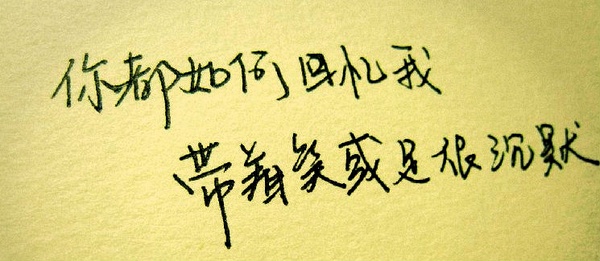 你都如何回忆我
带着笑或是很沉默